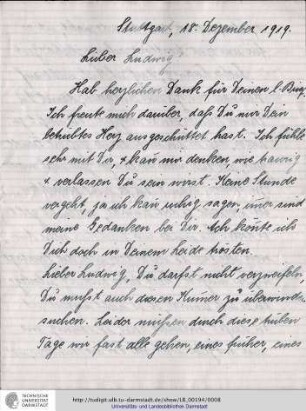 Stuttgart, 18. Dezember 1919.
Lieber Ludwig
Hab herzlichen Dank für Deinen l. Brief.
Ich freute mich darüber, daß Du mir Dein
betrübtes Herz ausgeschüttet hast. Ich fühle
sehr mit Dir, & kan mir denken, wie traurig
& verlassen Du sein wirst. Keine Stunde
vergeht ja ich kan ruhig sagen imer sind
meine Gedanken bei Dir. Ich könte
Dich doch in Deinem Leide trösten.
Lieber Ludwig, Du darfst nicht verzweifeln,
Du mußt auch diesen Kumer zu überwinden
suchen. Leider müssen durch diese trüben
Tage wir fast alle gehen, eines früher, eines
TECHNISCHE
UNIVERSITÄT
DARMSTADT
http://tudigit.ulb.tu-darmstadt.de/show/LB_00194/0008
Universitäts- und Landesbibliothek Darmstadt